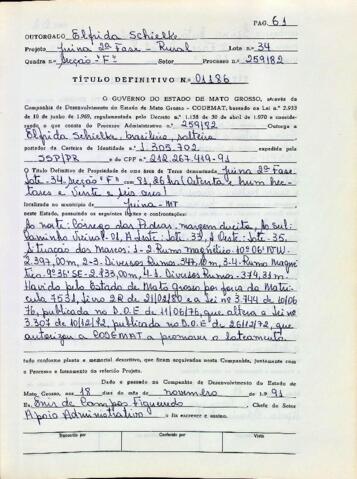 PAG. 61
OUTORGADO Elfrida Schielke
Projeto Juina 2ª Fase - Rural Lote n.º 34
Quadra n.º Secção "F" Setor Processo n.º 259/82
TÍTULO DEFINITIVO N.º 01186
O GOVERNO DO ESTADO DE MATO GROSSO, através da
Companhia de Desenvolvimento do Estado de Mato Grosso - CODEMAT, baseado na Lei n.º 2.933
de 10 de junho de 1969, regulamentada pelo Decreto n.º 1.138 de 30 de abril de 1970 e conside-
rando, o que consta do Processo Administrativo n.º 259/82 Outorga a
Elfrida Schielke, brasileira, solteira
portador da Carteira de Identidade n.º 1.305.702 expedida pela
SSP/PR e do CPF n.º 212.267.419-91
O Título Definitivo de Propriedade de uma área de Terra denominada Juina 2ª Fase
Lote-34, Secção "F" com 81,26 ha (Oitenta e hum hec-
tares e vinte e seis ares)
localizada no município de Juina-MT
neste Estado, possuindo os seguintes limites e confrontações:
Ao norte: Córrego das Pedras, margem direita, Ao Sul:
Caminho Vicinal 01, A Leste: Lote-33, A Oeste: Lote-35.
Situação dos Marcos: 1-2 Rumo magnético 10º06'NW-
2.397,00m, 2-3 Diversos Rumos-347,10m, 3-4-Rumo Magné
tico-9º36'SE-2.133,00m, 4-1 Diversos Rumos-379,31m
Havido pelo Estado de Mato Grosso por força da Matrí-
cula 7531, livro 2R de 21/02/80 e a Lei nº 3.744 de 10/06
76, publicada no D.O.E de 11/06/76, que altera a Lei nº
3.307 de 10/12/72, publicada no D.O.E de 26/12/72, que
autorizou a CODEMAT a promover o loteamento
tudo conforme planta e memorial descritivo, que ficam arquivados nesta Companhia, juntamente com
o Processo e loteamento do referido Projeto.
Dado e passado na Companhia de Desenvolvimento do Estado de
Mato Grosso, aos 18 dias do mês de novembro de 1991
Eu, Enir de Campos Figueiredo, Chefe do Setor
Apoio Administrativo o fiz escrever e assino.
Transcrito por Conferido por Visto